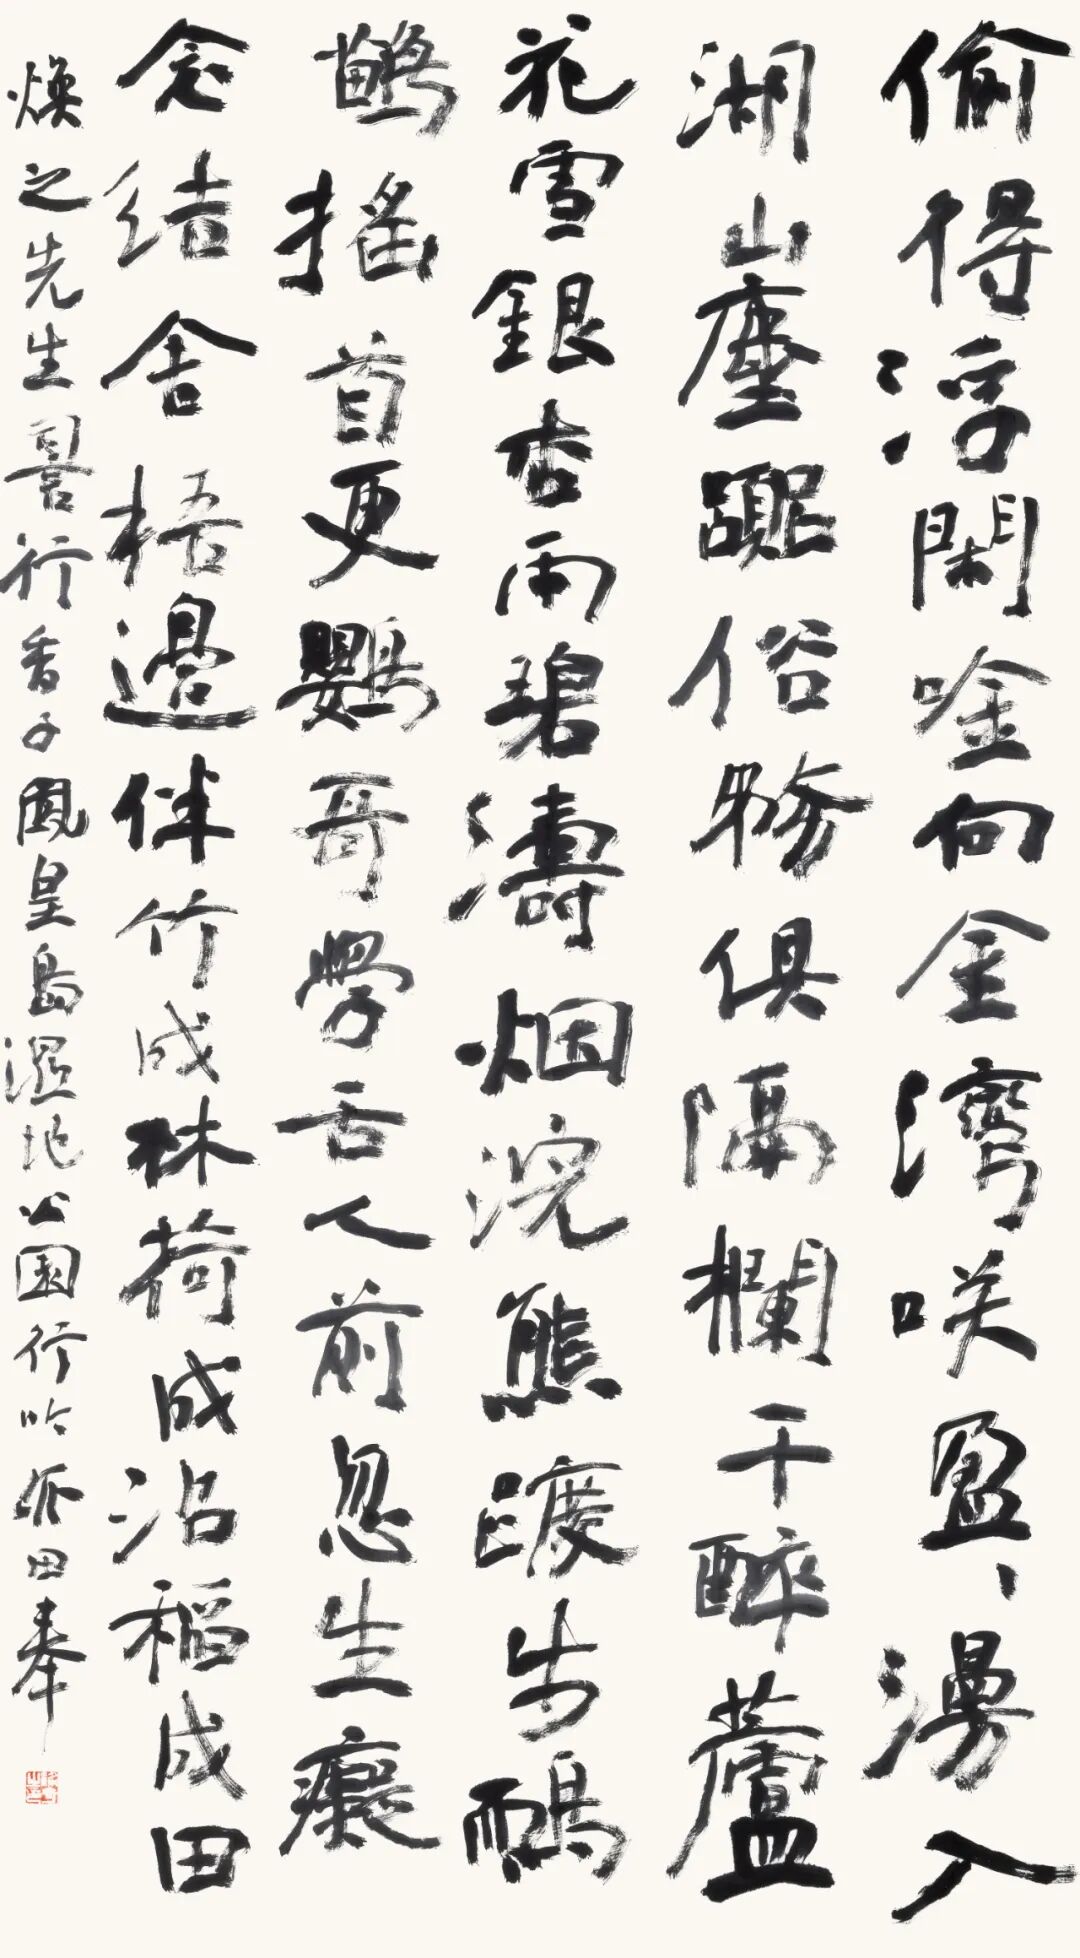 偷得浮閑唫向金灣咲盈、湯入
湖山塵躧俗務俱隔欄干醉蘆
花雪銀杏雨碧濤烟浣熊踱步鸸
鹋搖首更鹦哥學舌人前忽生癡
念结舍梧邊伴竹成林荷成沼稻成田
焕之先生署行香子鳳皇島濕地公園行吟 田奉